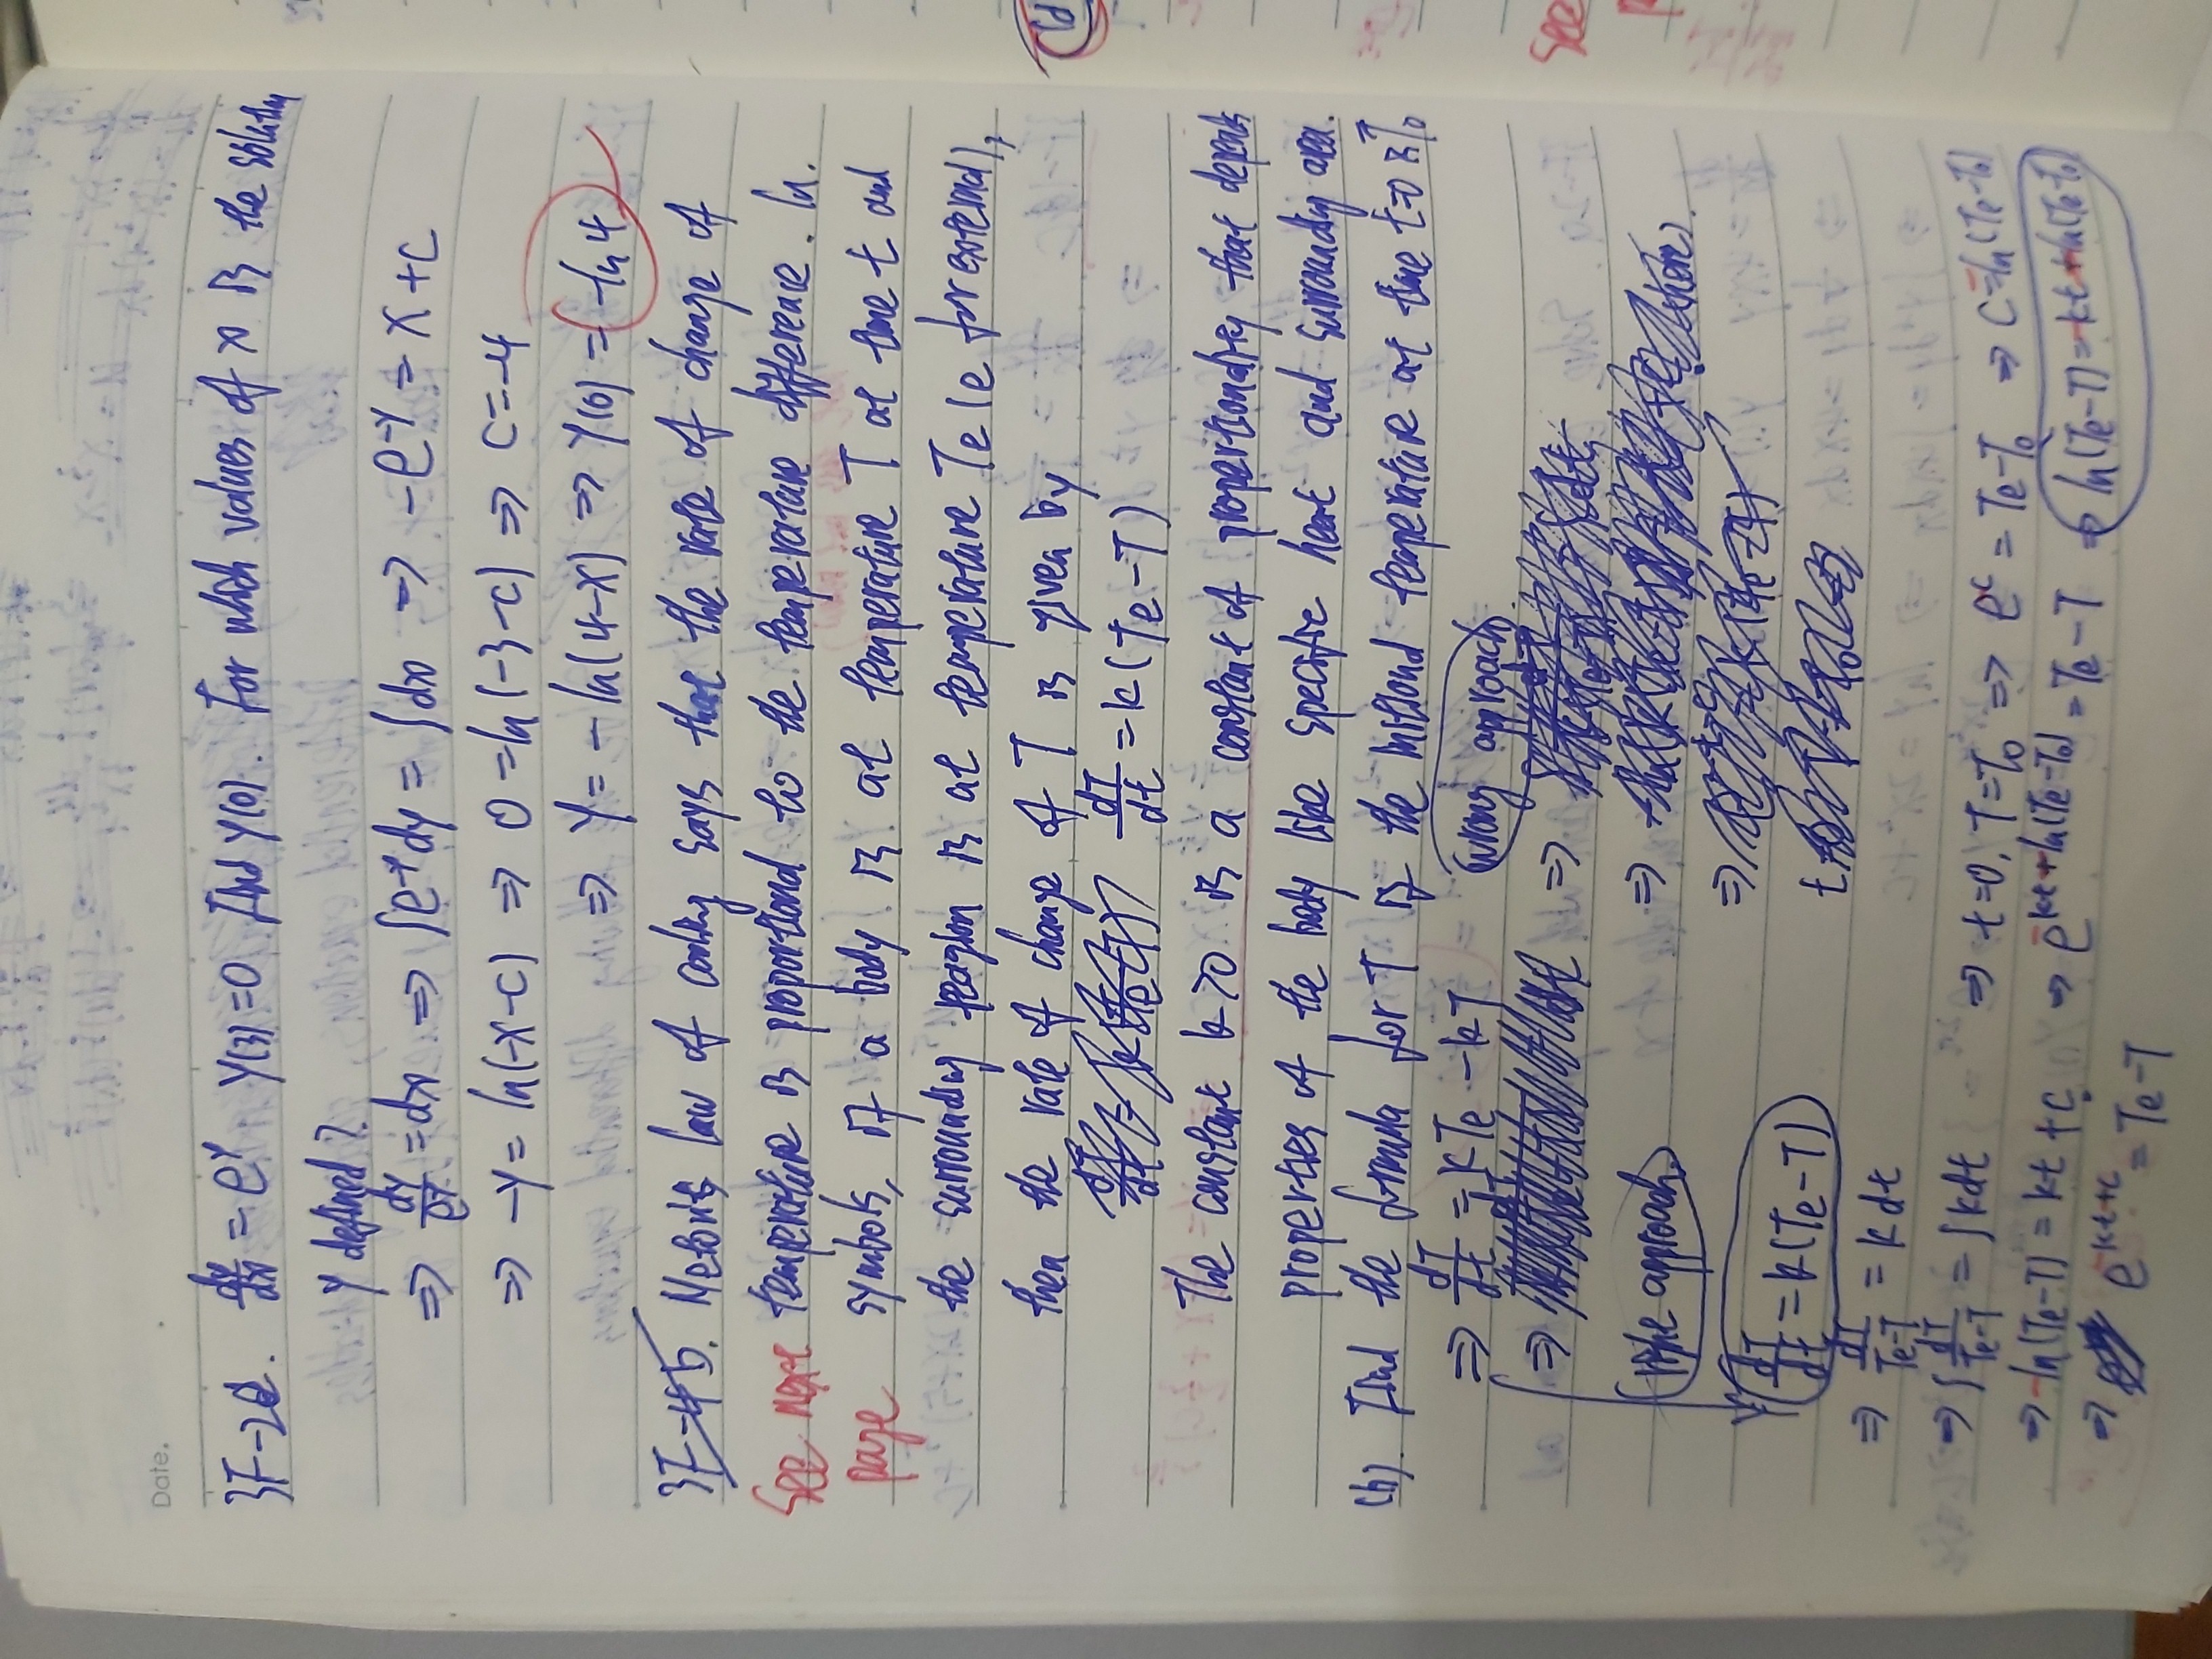 Date.
3F-2e. dy/dx = e^y y(3)=0 Find y(0). For which values of x is the solution
y defined?
⇒ dy/e^y = dx ⇒ ∫e^-y dy = ∫dx ⇒ -e^-y = x + c
⇒ -y = ln(-x-c) ⇒ 0 = ln(-3-c) ⇒ c = -4
⇒ y = -ln(4-x) ⇒ y(0) = -ln 4
3F-4b. law of cooling says that the rate of change of
See next temperature is proportional to the temperature difference. In
page symbols, if a body is at temperature T at time t and
the surrounding is at temperature Te (e for external),
then the rate of change of T is given by
dT/dt = k(Te-T)
The constant k>0 is a constant of proportionality that depends
properties of the body like specific heat and surrounding area.
(b). Find the formula for T if the temperature at time t=0 is T0
⇒ dT/dt = kTe - kT wrong approach
⇒ ⇒
approach ⇒
⇒
dT/dt = k(Te-T) t
⇒ dT/Te-T = k dt
⇒ ∫ dT/Te-T = ∫kdt ⇒ t=0, T=T0 ⇒ e^c = Te-T0 ⇒ c = ln(Te-T0)
⇒ -ln(Te-T) = kt + c ⇒ e^-kt+ln(Te-T0) = Te-T ⇒ ln(Te-T) = -kt+ln(Te-T0)
⇒ e^-kt+c = Te-T